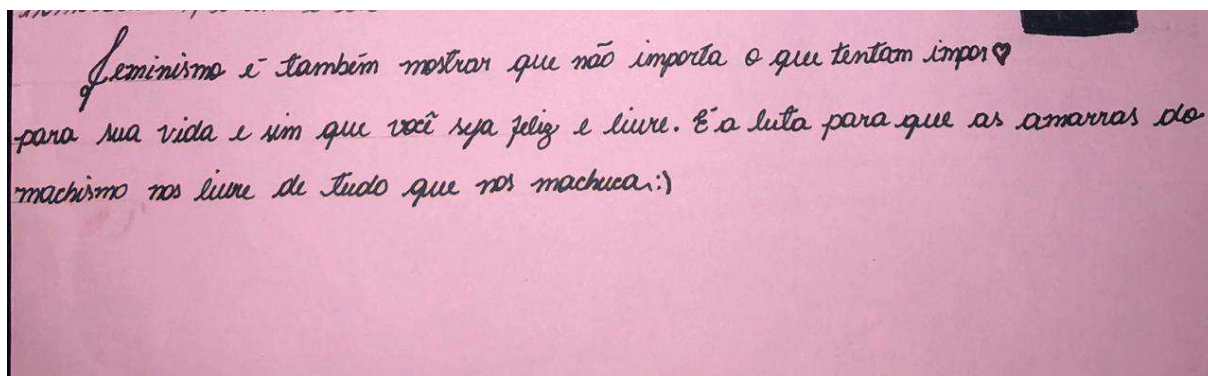 Feminismo é também mostrar que não importa o que tentam impor♡
para sua vida e sim que você seja feliz e livre. É a luta para que as amarras do
machismo nos livre de tudo que nos machuca.:)